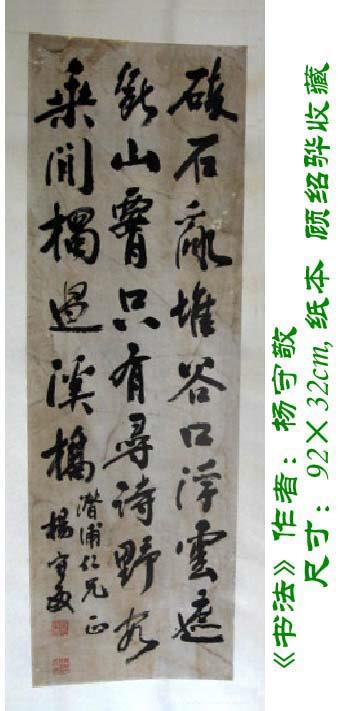 石亂堆谷口浮雲遮
斷山只有尋詩野客
乘閒獨過溪橋
潛浦仁兄 正
楊守敬
《书法》 作者：杨守敬
尺寸：92×32cm, 纸本 顾绍骅收藏